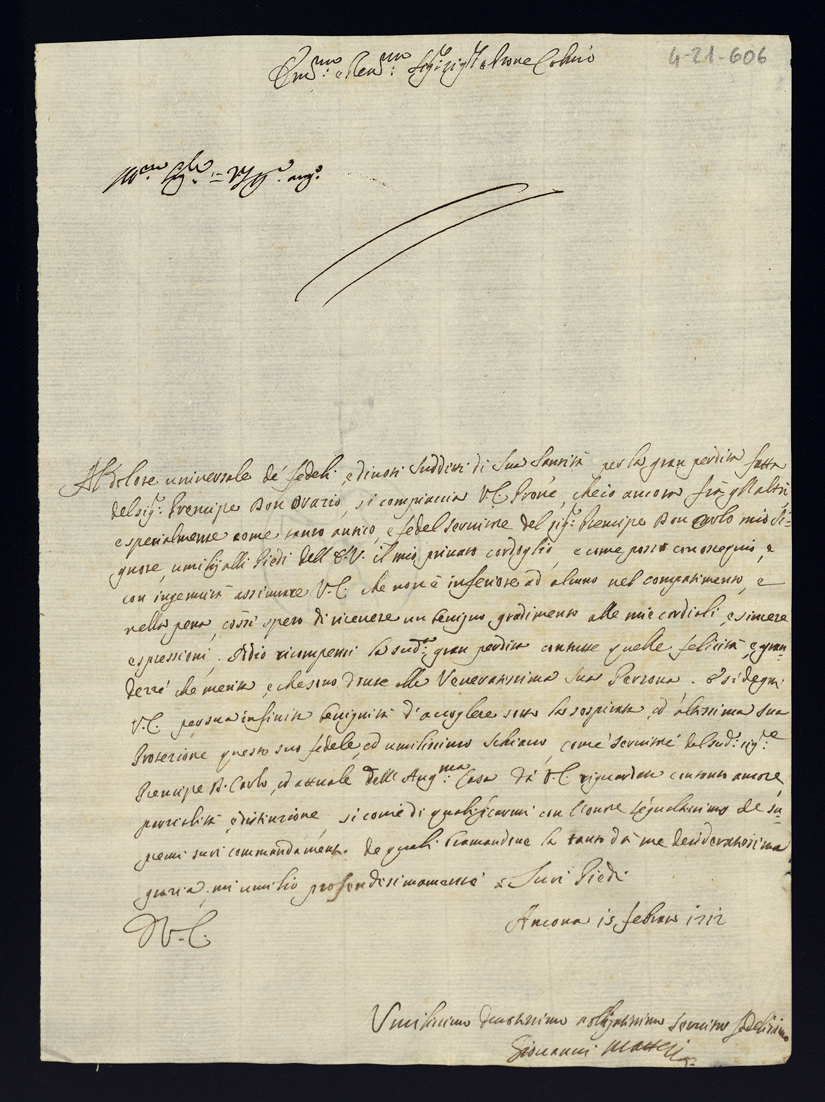 4-21-606
Em.mo e Rev.mo Sig.r Sig.r e Prone Col.mo
Al dolore universale de' fedeli, e divoti sudditi di Sua Santità per la gran perdita fatta
del sig.r Prencipe Don Orazio, si compiaccia V.E. Prone, che io ancora frà gl'altri
e spezialmente come tanto antico, e fedel servitore del sig.r Prencipe Don Carlo mio Si=
gnore, umilij alli Piedi dell'E.V. il mio privato cordoglio, e come posso con ossequio, e
con ingenuità assicurare V.E. che non è inferiore ad alcuno nel compatimento, e
nella pena, così spero di ricevere un benigno gradimento alle mie cordiali, e sincere
espressioni. Iddio ricompensi la sud.a gran perdita con tutte quelle felicità, e gran=
dezze che merita, e che sono dovute alla Veneratissima sua Persona. E si degni
V.E. per sua infinita benignità d'accogliere sotto la sospirata, ed altissima sua
Protezione questo suo fedele, ed umilissimo schiavo, come servitore del sud.o sig.re
Prencipe D. Carlo, ed attuale dell'Aug.ma Casa da V.E. riguardata con tanto amore,
parzialità, e distinzione, si come di qualificarmi con l'onore segnalatissimo de su=
premi suoi commandamenti. De quali bramandone la tanto da me desideratissima
grazia, mi umilio profondissimamente a Suoi Piedi
D V.E. Ancona 15 febraro 1712
Umilissimo devotissimo obligatissimo servitore fedelissimo
Giovanni